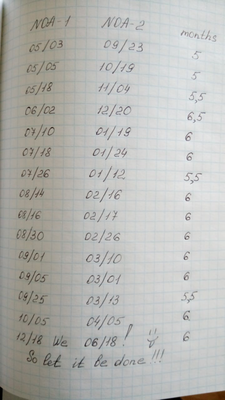 NOA-1 NOA-2 months
05/03 09/23 5
05/05 10/19 5
05/18 11/04 5,5
06/02 12/20 6,5
07/10 01/19 6
07/18 01/24 6
07/26 01/12 5,5
08/14 02/16 6
08/16 02/17 6
08/30 02/26 6
09/01 03/10 6
09/05 03/01 6
09/25 03/13 5,5
10/05 04/05 6
12/18 We 06/18! 6
So let it be done!!!